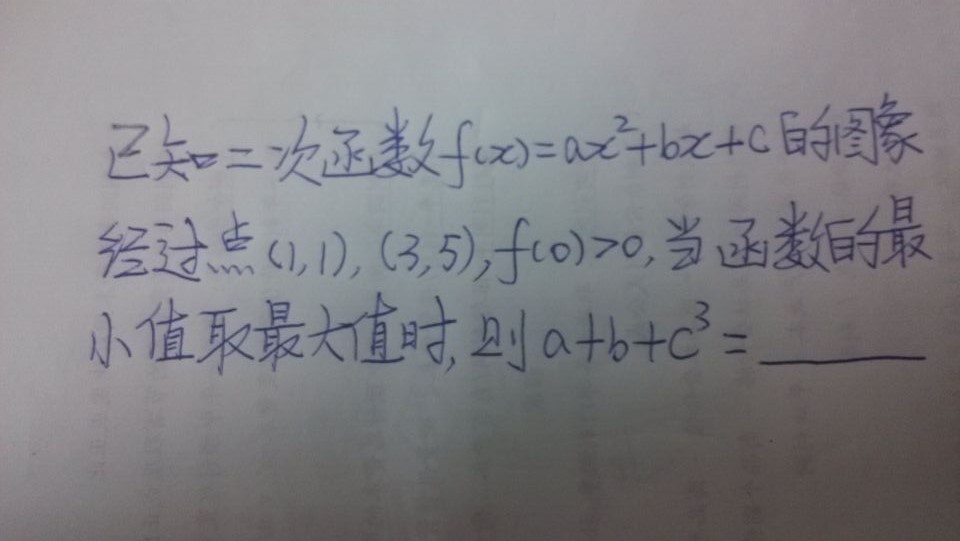 已知二次函数f(x)=ax²+bx+c的图象
经过点(1,1),(3,5),f(0)>0,当函数的最
小值取最大值时,则a+b+c³=______